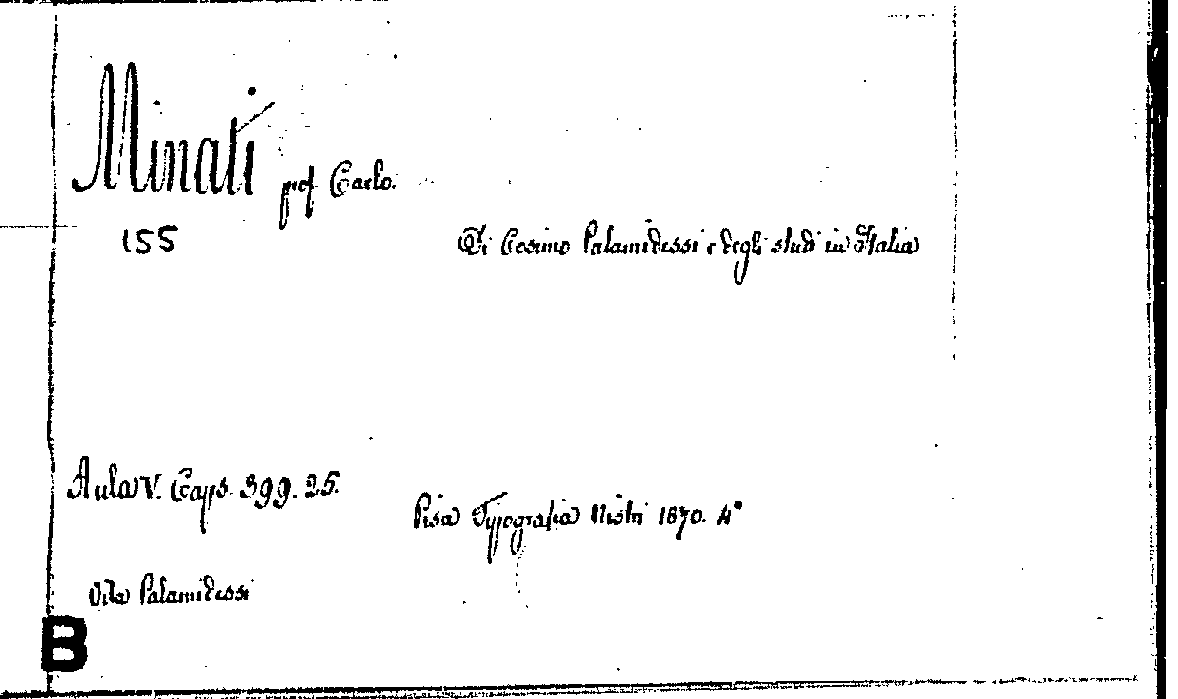 Minati prof Carlo.
155
Di Cosimo Palamidessi e degli studi in Italia
Aula V. Caps. 399. 25.
Pisa Tipografia Nistri 1870. 4°
Vita Palamidessi
B